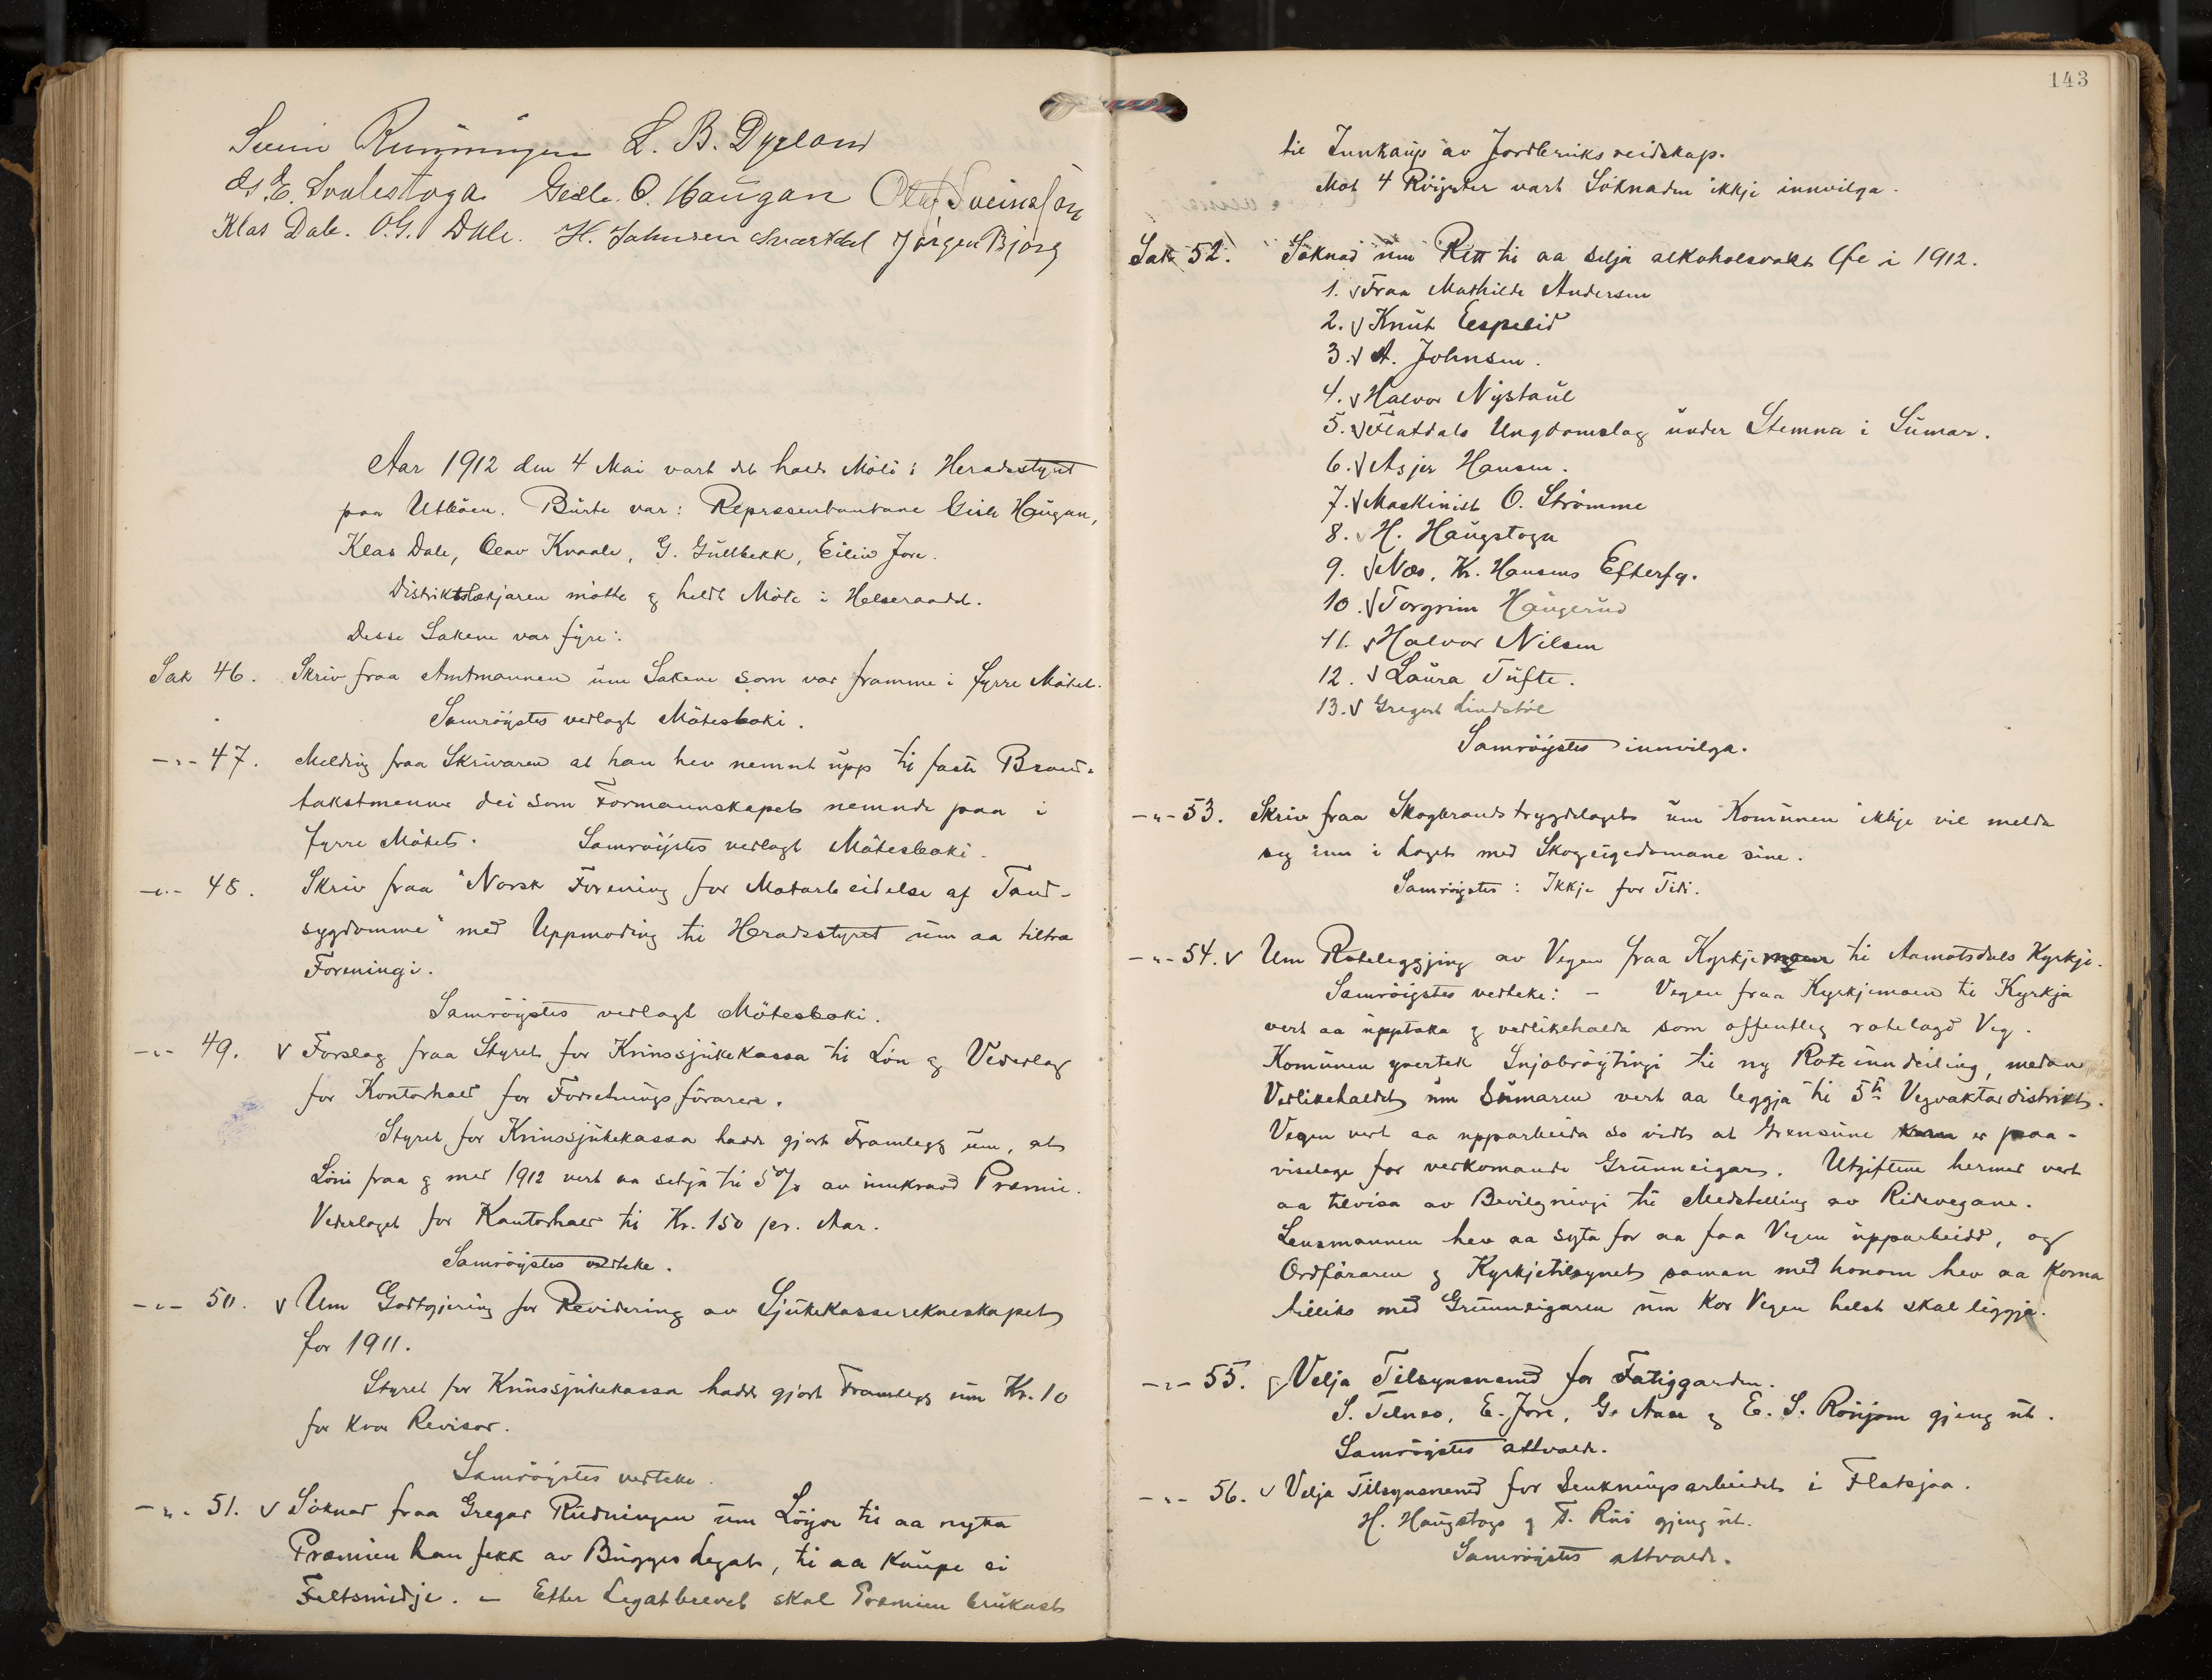 Svein Runningen L. B. Dyrland
O. E. Svalestoga Gisle O. Haugan Olaf Sveinsson
Klas Dale. O.G. Dale. H. Johnsen Svartdal Jørgen Bjørg
Aar 1912 den 4 Mai vart det halde Möte i Heradsstyret
paa Utböen. Burte var: Representantane Gisle Haugan,
Klas Dale, Olav Kvaale, G. Gullbekk, Eiliv Jore.
Distriktslækjaren mötte og heldt Möte i Helseraadet.
Desse Sakene var fyre:
Sak 46. Skriv fraa Amtmannen um Sakene som var framme i fyrre Mötet.
Samröystes vedlagt Mötesboki.
-"- 47. Melding fraa Skrivaren at han hev nemnt upp til faste Brand-
takstmenne dei som Formannskapet nemnde paa i
fyrre Mötet. Samröystes vedlagt Mötesboki.
-"- 48. Skriv fraa "Norsk Forening for Motarbeidelse af Tand-
sygdomme" med Uppmoding til Heradsstyret um aa tiltra
Foreningi.
Samröystes vedlagt Mötesboki.
-"- 49. v Forslag fraa Styret for Krinssjukekassa til Lön og Vederlag
for Kontorhald for Forretningsföraren.
Styret for Krinssjukekassa hadde gjort Framlegg um, at
Löni fraa og med 1912 vert aa setja til 5% av innkravd Premie.
Vederlaget for Kontorhald til Kr. 150 pr. Aar.
Samröystes vedteke.
-"- 50. v Um Godtgjering for Revidering av Sjukekasserekneskapet
for 1911.
Styret for Krinssjukekassa hadde gjort Framlegg um Kr. 10
for kvar Revisor.
Samröystes vedteke.
-"- 51. v Söknad fraa Gregar Rudningen um Löyve til aa nytta
Premien han fekk av Bugges Legat, til aa kaupe ei
Feltsmidje. - Etter Legatbrevet skal Premien brukast
143
til Innkaup av Jordbruksreidskap.
Mot 4 Röyster vart Söknaden ikkje innvilga.
Sak 52. Söknad um Rett til aa selja alkoholsvakt Öl i 1912.
1. v Fraa Mathilde Andersen
2. v Knut Espelid
3. v A. Johnsen.
4. v Halvor Nystaul
5. v Flatdals Ungdomslag under Stemna i Sumar.
6. v Asjer Hansen.
7. v Maskinist O. Strömme
8. v H. Haugstoga
9. v Nos. Kr. Hansens Efterfg.
10. v Torgrim Haugerud
11. v Halvor Nilsen
12. v Laura Tufte.
13. v Gregert Lindstöl
Samröystes innvilga.
-"- 53. Skriv fraa Skogbrandstrygdelaget um Komunen ikkje vil melda
seg inn i Laget med Skogeigedomane sine.
Samröystes: Ikkje for Tidi.
-"- 54. v Um Roteleggjing av Vegen fraa Kyrkjemoen til Aamotsdals Kyrkje.
Samröystes vedteke: - Vegen fraa Kyrkjemoen til Kyrkja
vert aa upptaka og vedlikehalda som offentleg rotelagd Veg.
Komunen yvertek Snjobröytingi til ny Roteinndeiling, medan
Vedlikehaldet um Sumaren vert aa leggja til 5te Vegvaktardistrikt.
Vegen vert aa upparbeida so vidt at Grensune er paa-
viselege for vedkomande Grunneigar. Utgiftene hermed vert
aa tilvisa av Bevilgningi til Medstelling av Ridevegane.
Lensmannen hev aa syta for aa faa Vegen upparbeidd, og
Ordföraren og Kyrkjetilsynet saman med honom hev aa koma
tilliks med Grunneigaren um kor Vegen helst skal liggja.
-"- 55. Velja Tilsynsnemd for Fatiggarden.
S. Telnes, E. Jore, G. Aase og E. S. Rönjom gjeng ut.
Samröystes attvalde.
-"- 56. v Velja Tilsynsnemd for Senkningsarbeidet i Flatsjaa.
H. Haugstoga og T. Rui gjeng ut.
Samröystes attvalde.